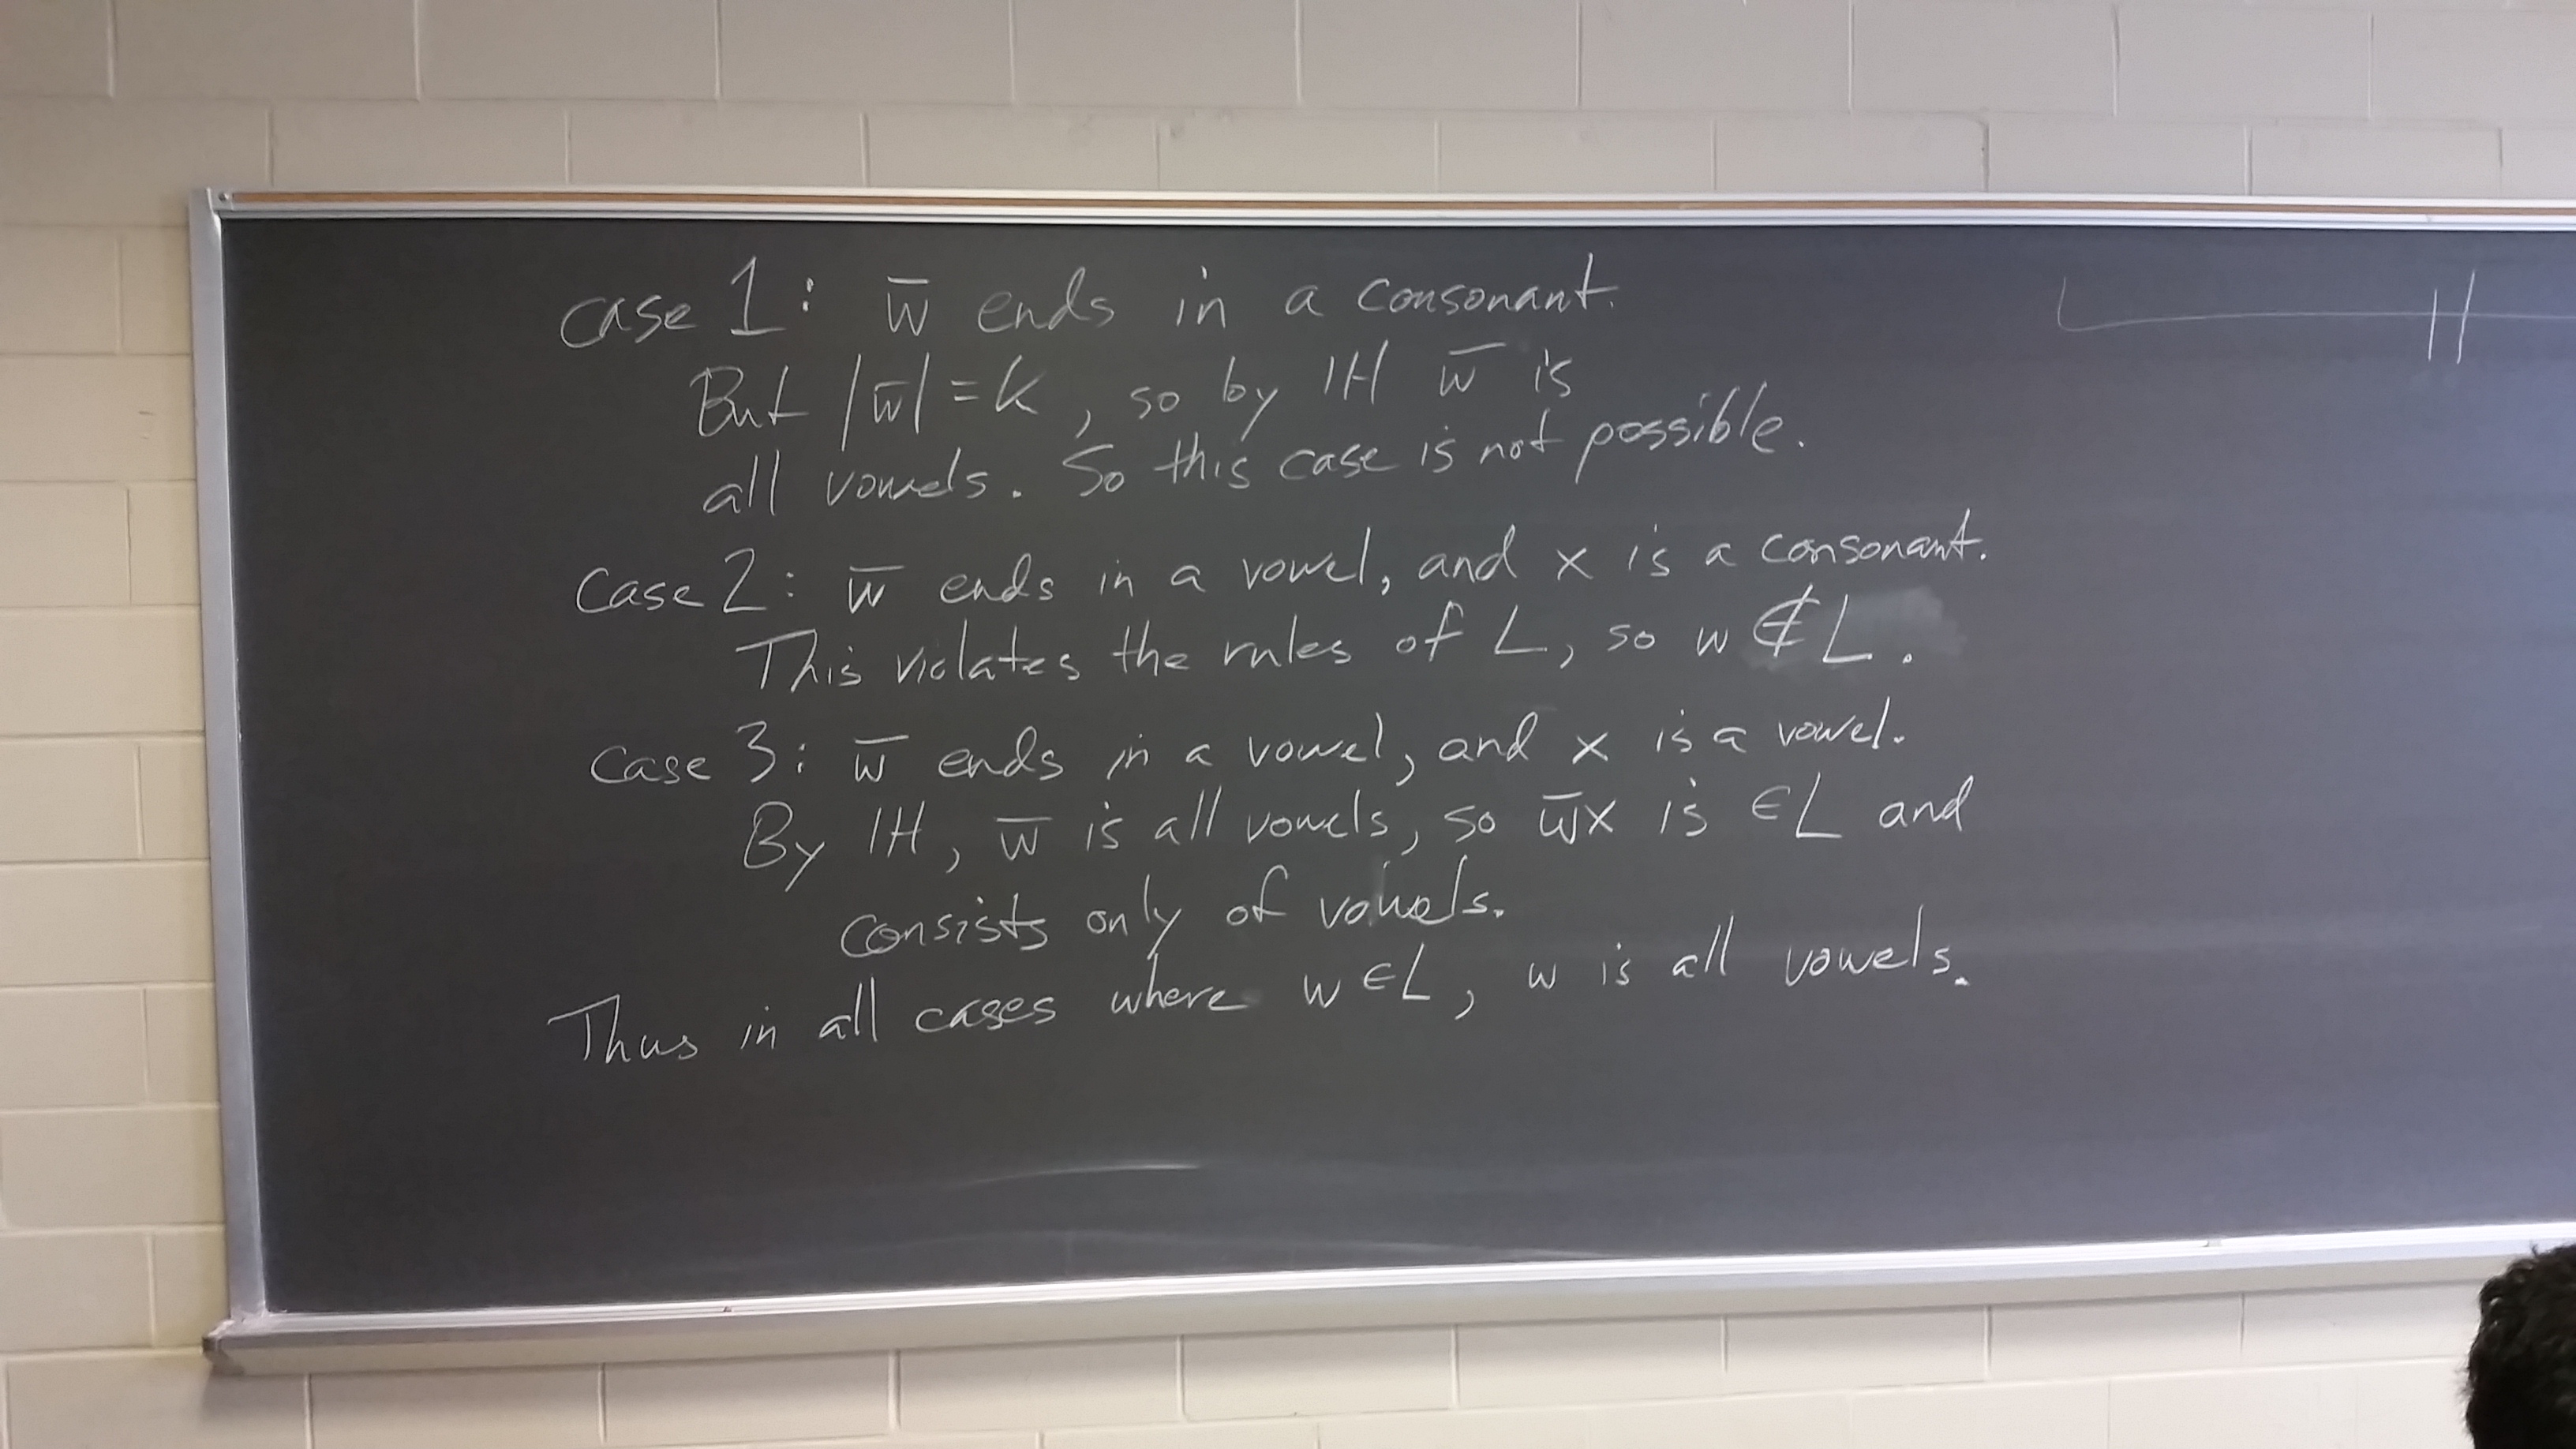 case 1: w̅ ends in a consonant.
But |w̅| = K, so by IH w̅ is
all vowels. So this case is not possible.
Case 2: w̅ ends in a vowel, and x is a consonant.
This violates the rules of L, so w ∉ L.
Case 3: w̅ ends in a vowel, and x is a vowel.
By IH, w̅ is all vowels, so w̅x is ∈ L and
consists only of vowels.
Thus in all cases where w ∈ L, w is all vowels.